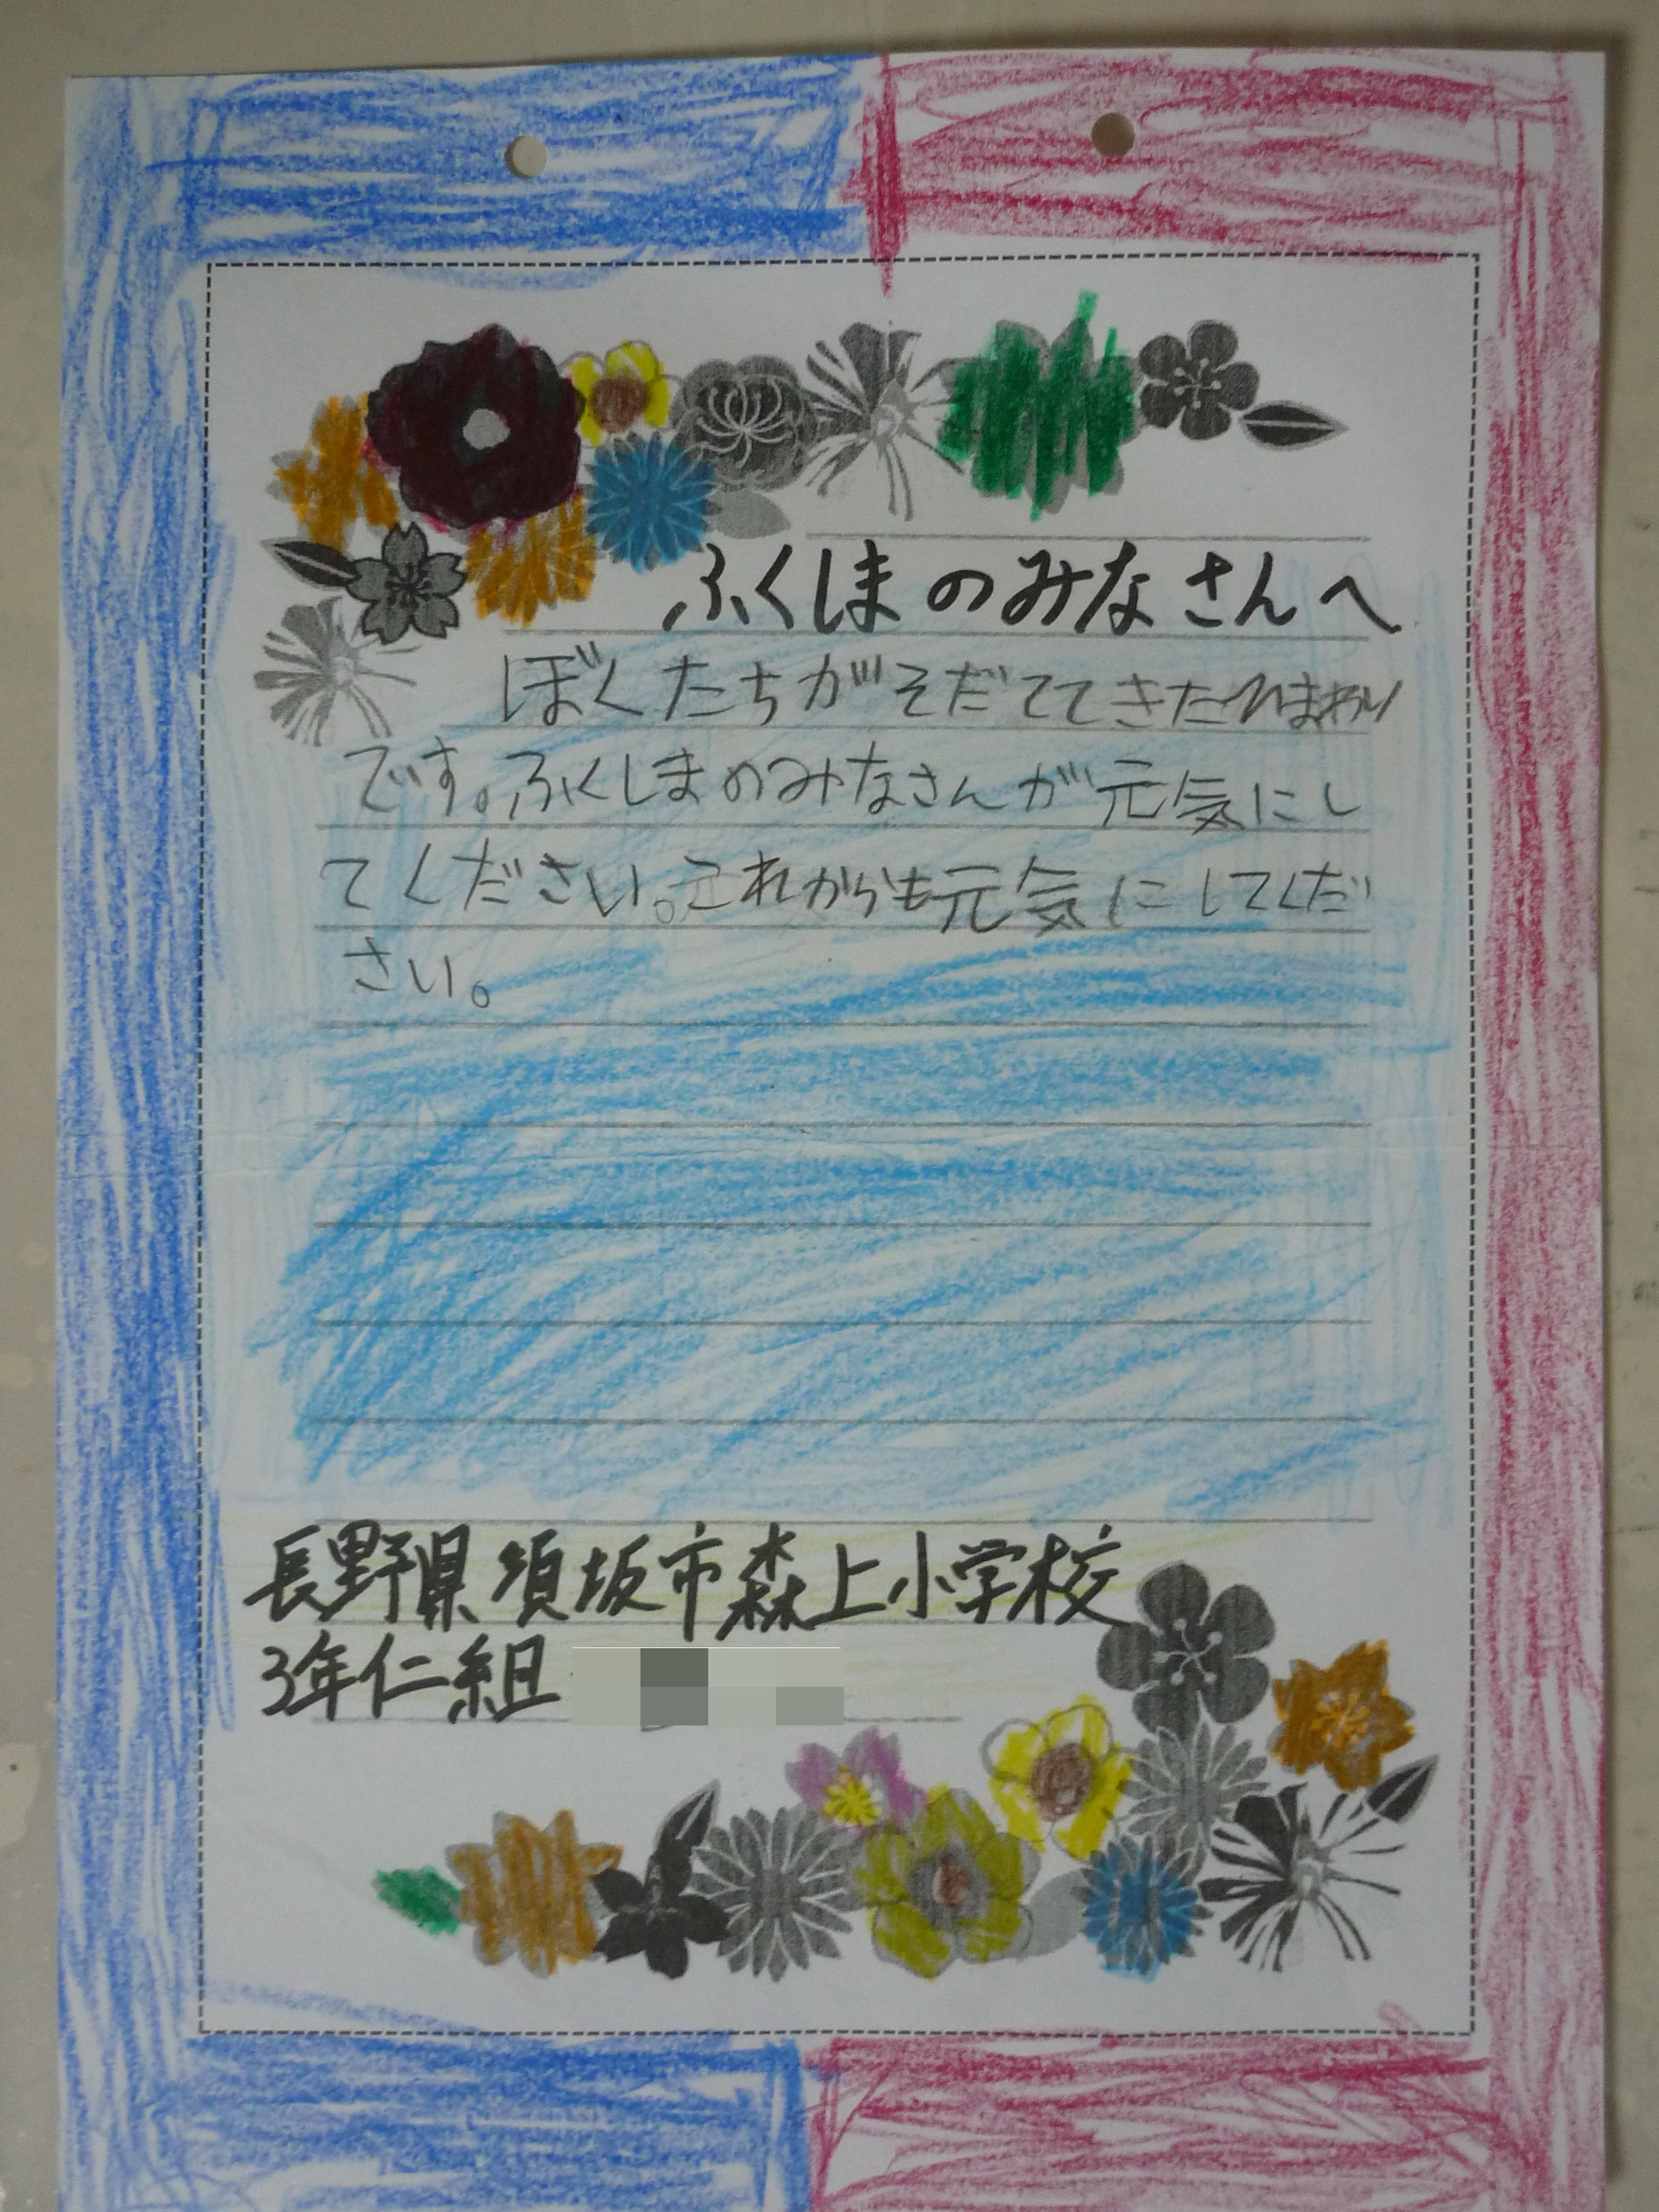 ふくしまのみなさんへ
ぼくたちがそだててきたひまわり
です。ふくしまのみなさんが元気にし
てください。これからも元気にしてくだ
さい。
長野県須坂市森上小学校
3年仁組